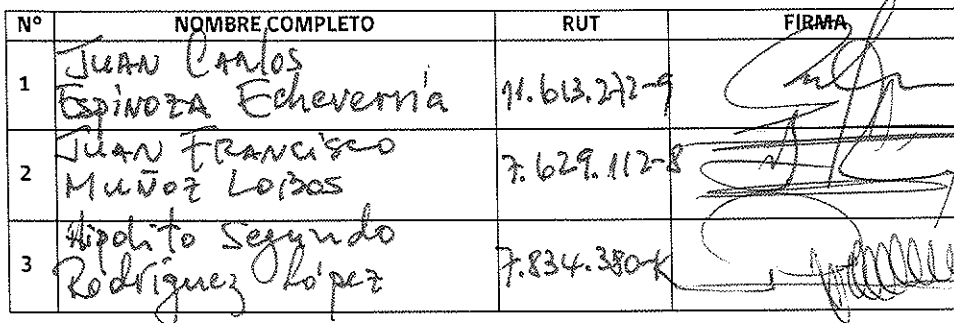 Nº NOMBRE COMPLETO RUT FIRMA
1 JUAN CARlOS
ESPINOZA Echeverría 11.613.272-9
2 JUAN FRANCISCO
MUÑOZ LOBOS 7.629.112-8
3 Hipolito Segundo
Rodríguez López 7.834.380-K